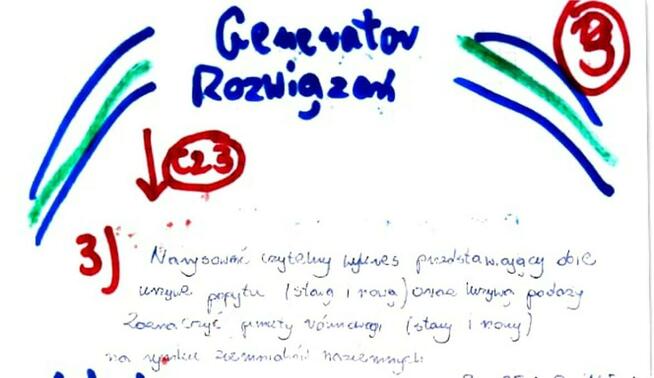 Generator
Rozwiązań
cz.3
3) Narysować czytelny wykres przedstawiający obie
krzywe popytu (starą i nową) oraz krzywą podaży
Zaznaczyć punkty równowagi (stary i nowy)
na rynku